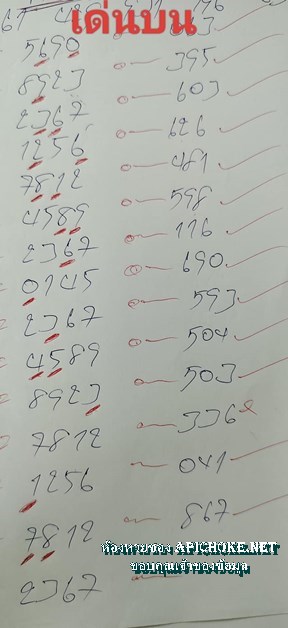 เด่นบน
5690
395
8923
603
2367
626
1256
481
7812
598
4589
116
2367
690
0145
593
2367
504
4589
503
8923
336
7812
041
1256
867
7812
ห้องหวยของ APICHOKE.NET
ขอบคุณเจ้าของข้อมูล
2367